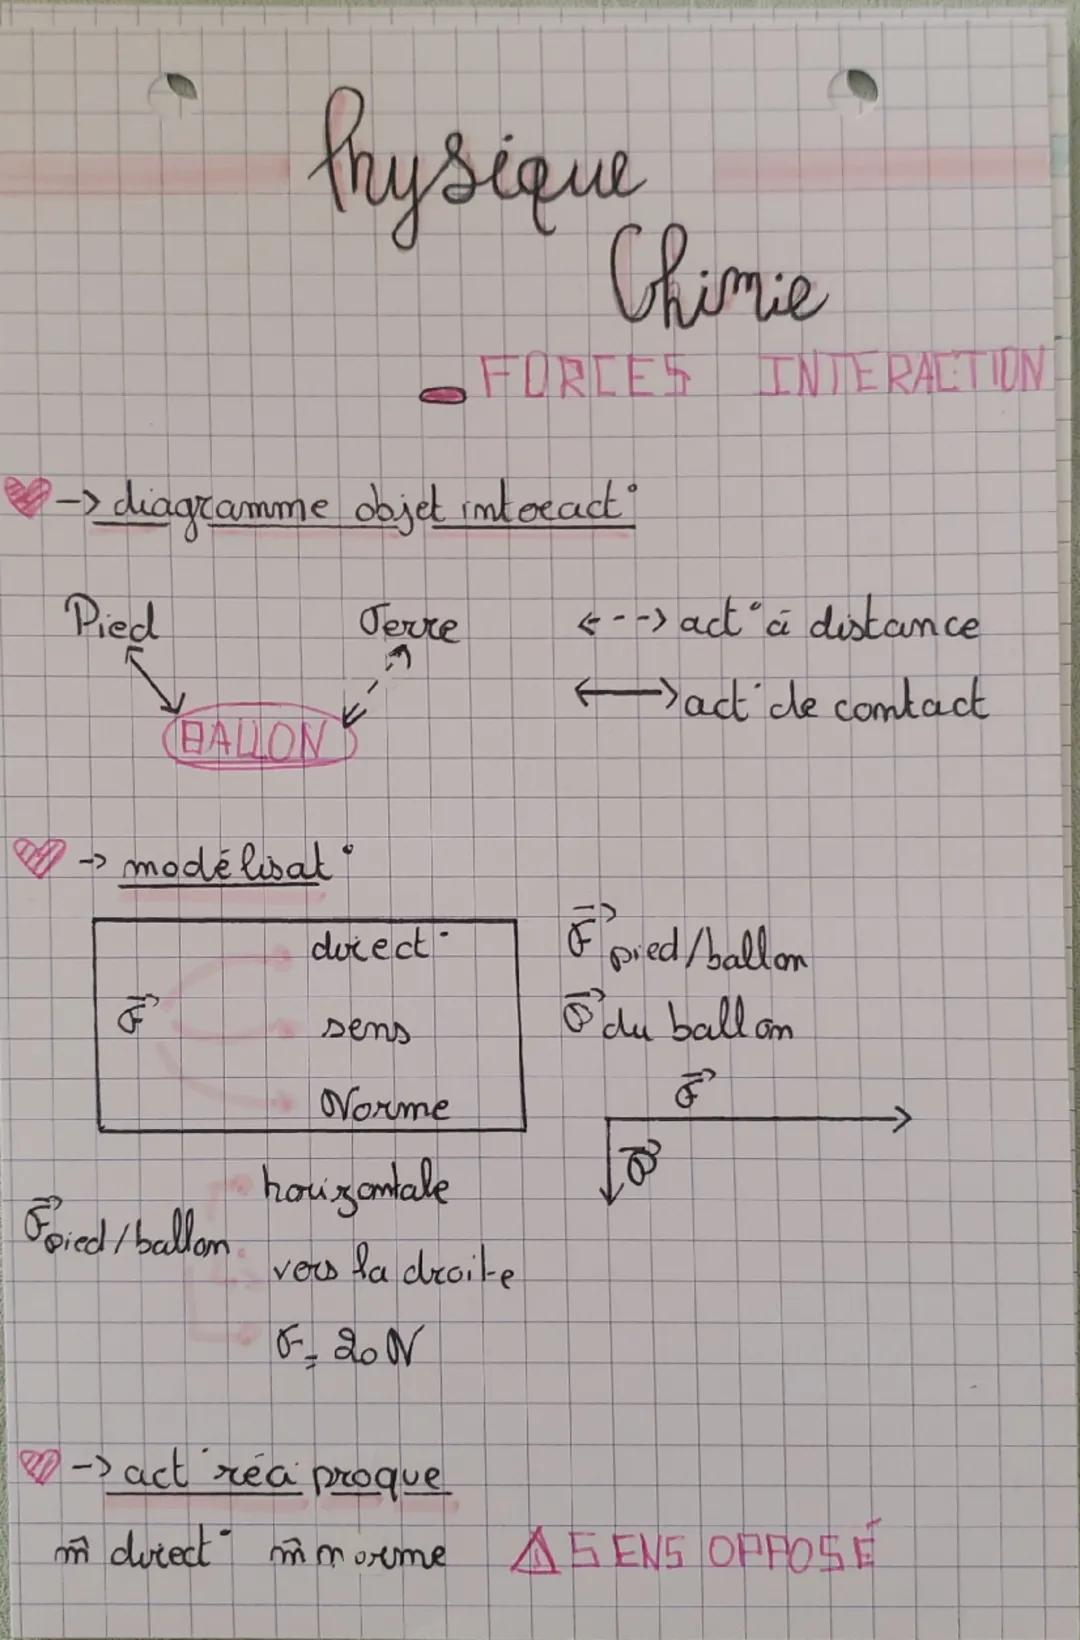 Physique
Chimie
- FORCES INTERACTION
-> diagramme objet interact°
Pied Terre <--> act° à distance
BALLON <-> act° de contact
-> modélisat°
direct° F pied/ballon
F sens P du ballon
Norme F
P
horizontale
F pied/ballon
vers la droite
F = 20 N
-> act° réciproque
m̂ direct° m̂ norme ⚠ SENS OPPOSÉ